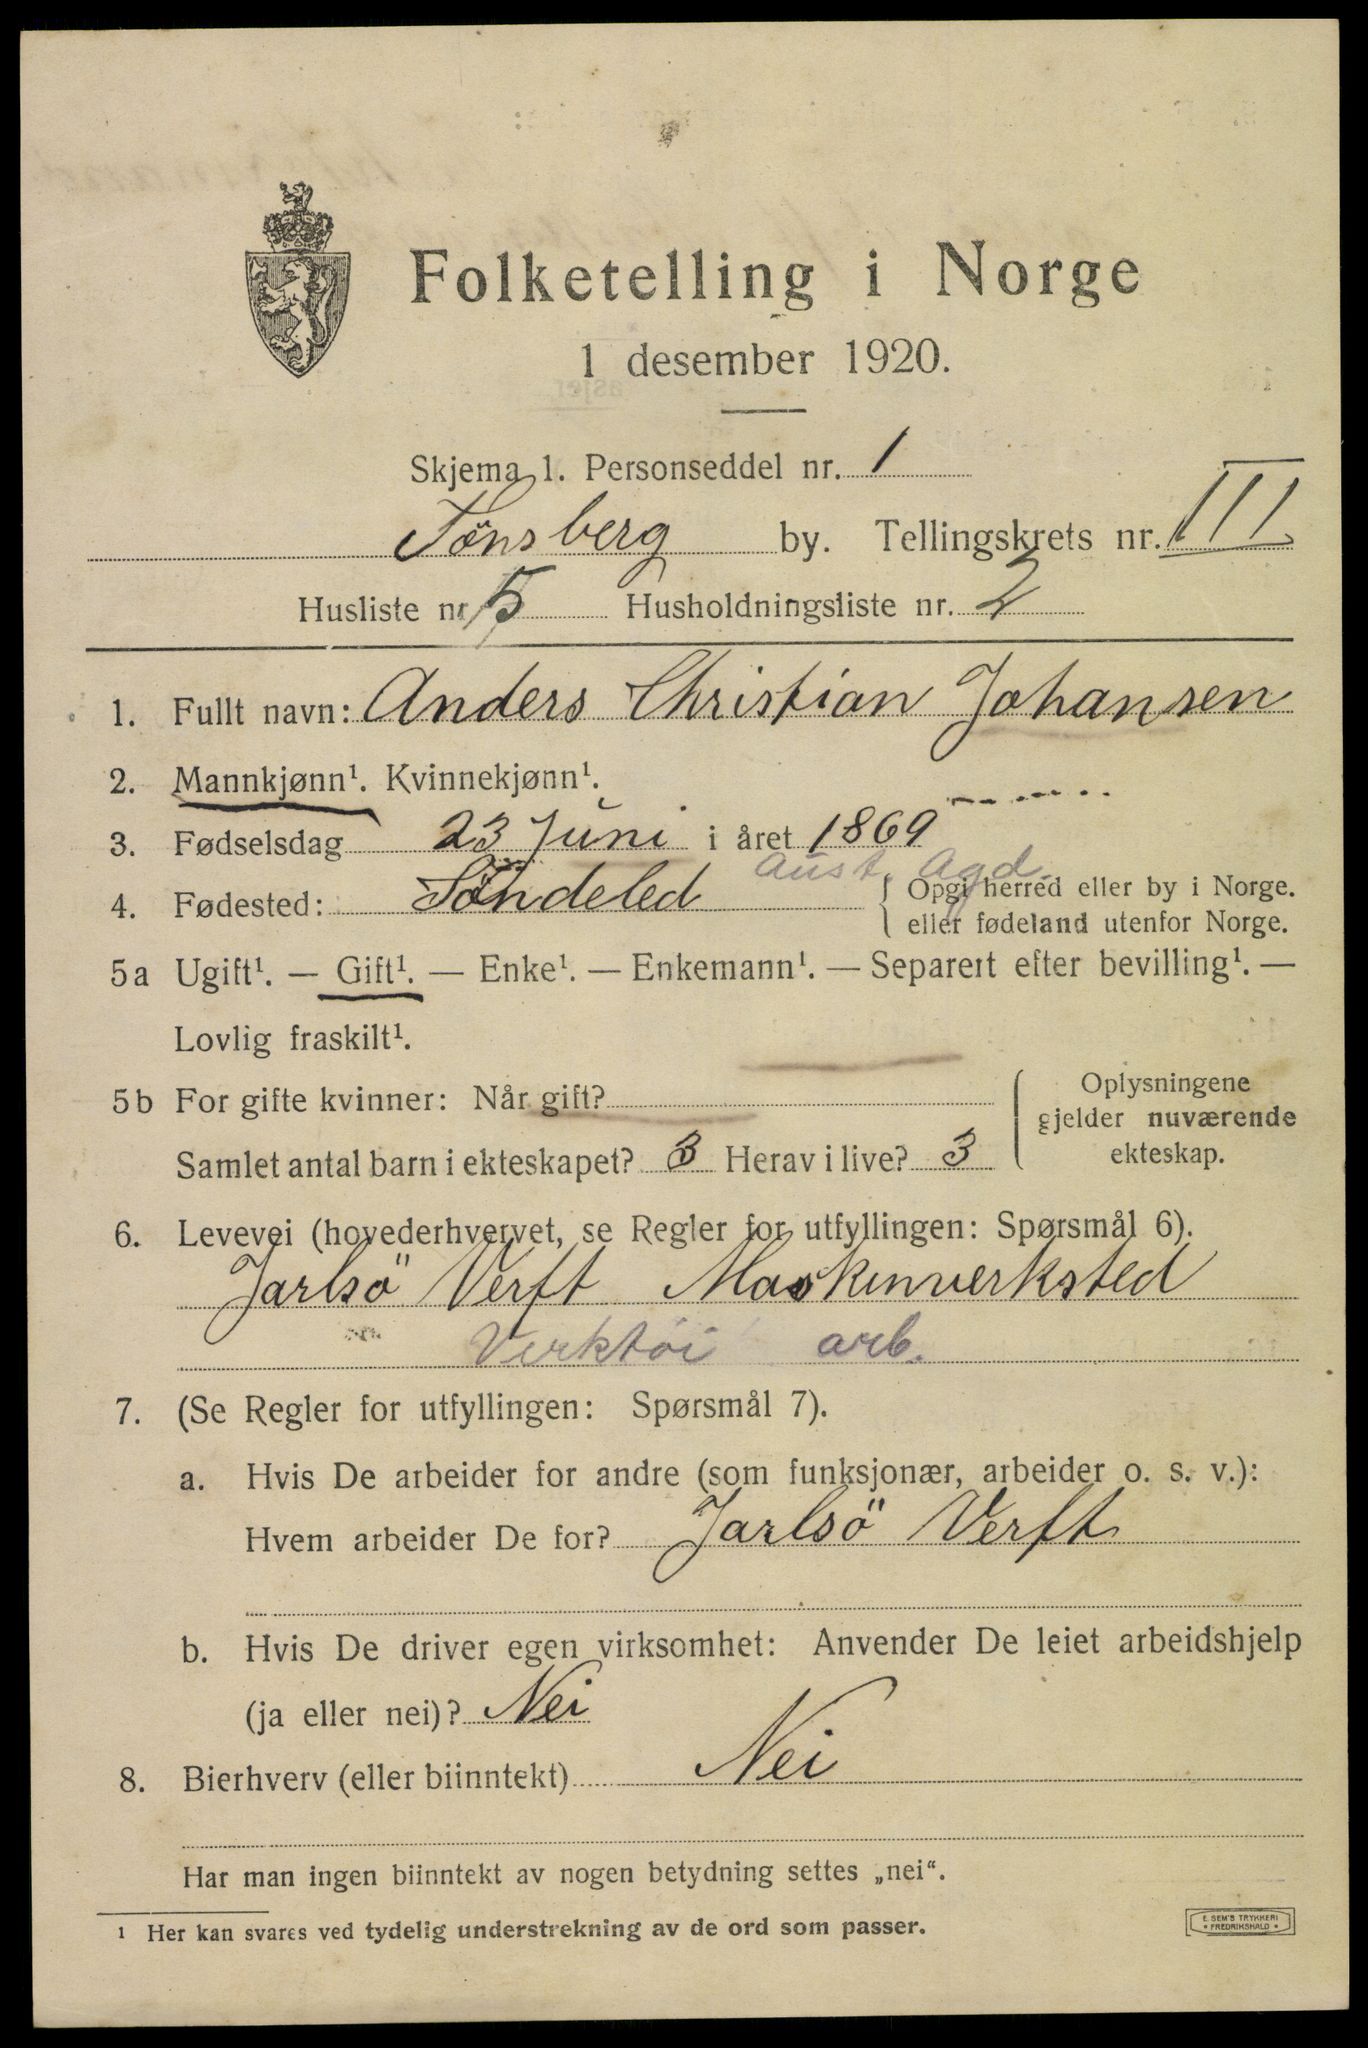 Folketelling i Norge
1 desember 1920.
Skjema 1. Personseddel nr. 1
Tönsberg by. Tellingskrets nr. III
Husliste nr 5 Husholdningsliste nr. 2
1. Fullt navn: Anders Christian Johansen
2. Mannkjønn¹. Kvinnekjønn¹.
3. Fødselsdag 23 Juni i året 1869
Aust. Agd.
4. Fødested: Söndeled { Opgi herred eller by i Norge.
eller fødeland utenfor Norge.
5a Ugift¹. — Gift¹. — Enke¹. — Enkemann¹. — Separert efter bevilling¹. —
Lovlig fraskilt¹.
5b For gifte kvinner: Når gift?
Samlet antal barn i ekteskapet? 3 Herav i live? 3
Oplysningene
gjelder nuværende
ekteskap.
6. Levevei (hovederhvervet, se Regler for utfyllingen: Spørsmål 6).
Jarlsö Verft Maskinverksted
Verktöi arb.
7. (Se Regler for utfyllingen: Spørsmål 7).
a. Hvis De arbeider for andre (som funksjonær, arbeider o. s. v.):
Hvem arbeider De for? Jarlsö Verft
b. Hvis De driver egen virksomhet: Anvender De leiet arbeidshjelp
(ja eller nei)? Nei
8. Bierhverv (eller biinntekt) Nei
Har man ingen biinntekt av nogen betydning settes „nei“.
¹ Her kan svares ved tydelig understrekning av de ord som passer.
E. SEM'S TRYKKERI
FREDRIKSHALD